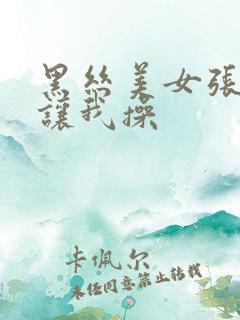 黑丝美女张
讓我操
卡佩尔
未经同意禁止转载